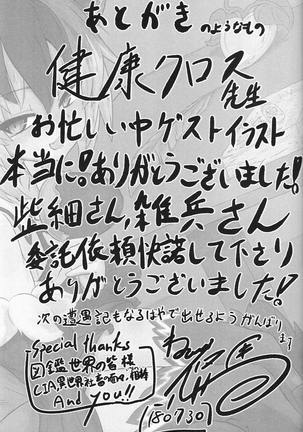 あとがきのようなもの
健康クロス先生
お忙しい中ゲストイラスト
本当に!ありがとうございました!
柴細さん,雑兵さん
委託依頼快諾して下さり
ありがとうございました!
次の遭遇記もなるはやで出せるようがんばります
Special thanks
図鑑世界の皆様
And you!!
180730